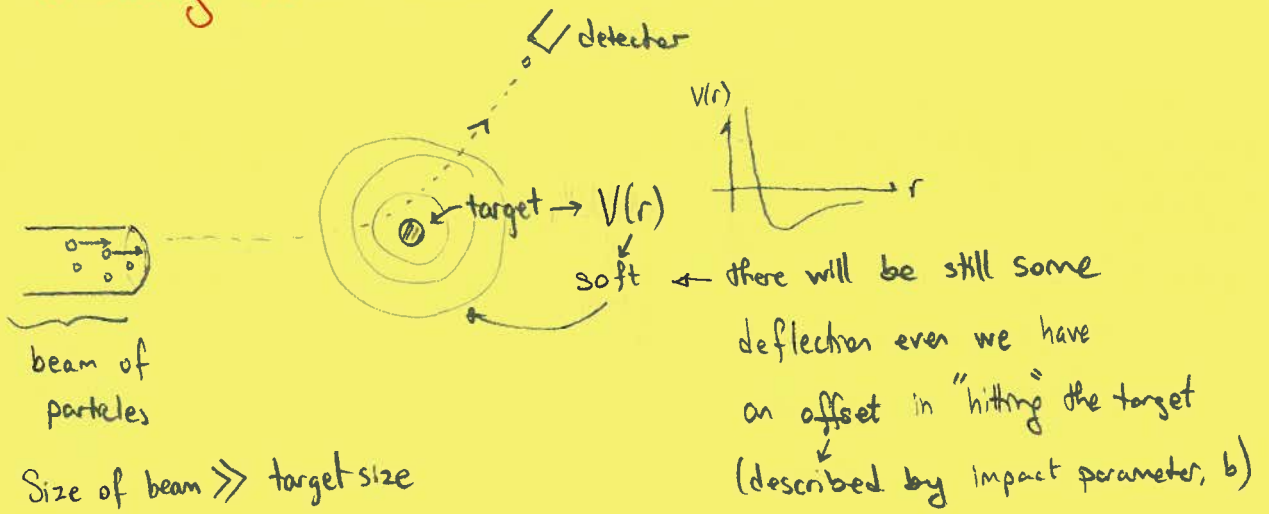 detector
V(r)
r
target → V(r)
soft ← there will be still some
deflection even we have
an offset in "hitting" the target
(described by impact parameter, b)
beam of
particles
Size of beam >> target size